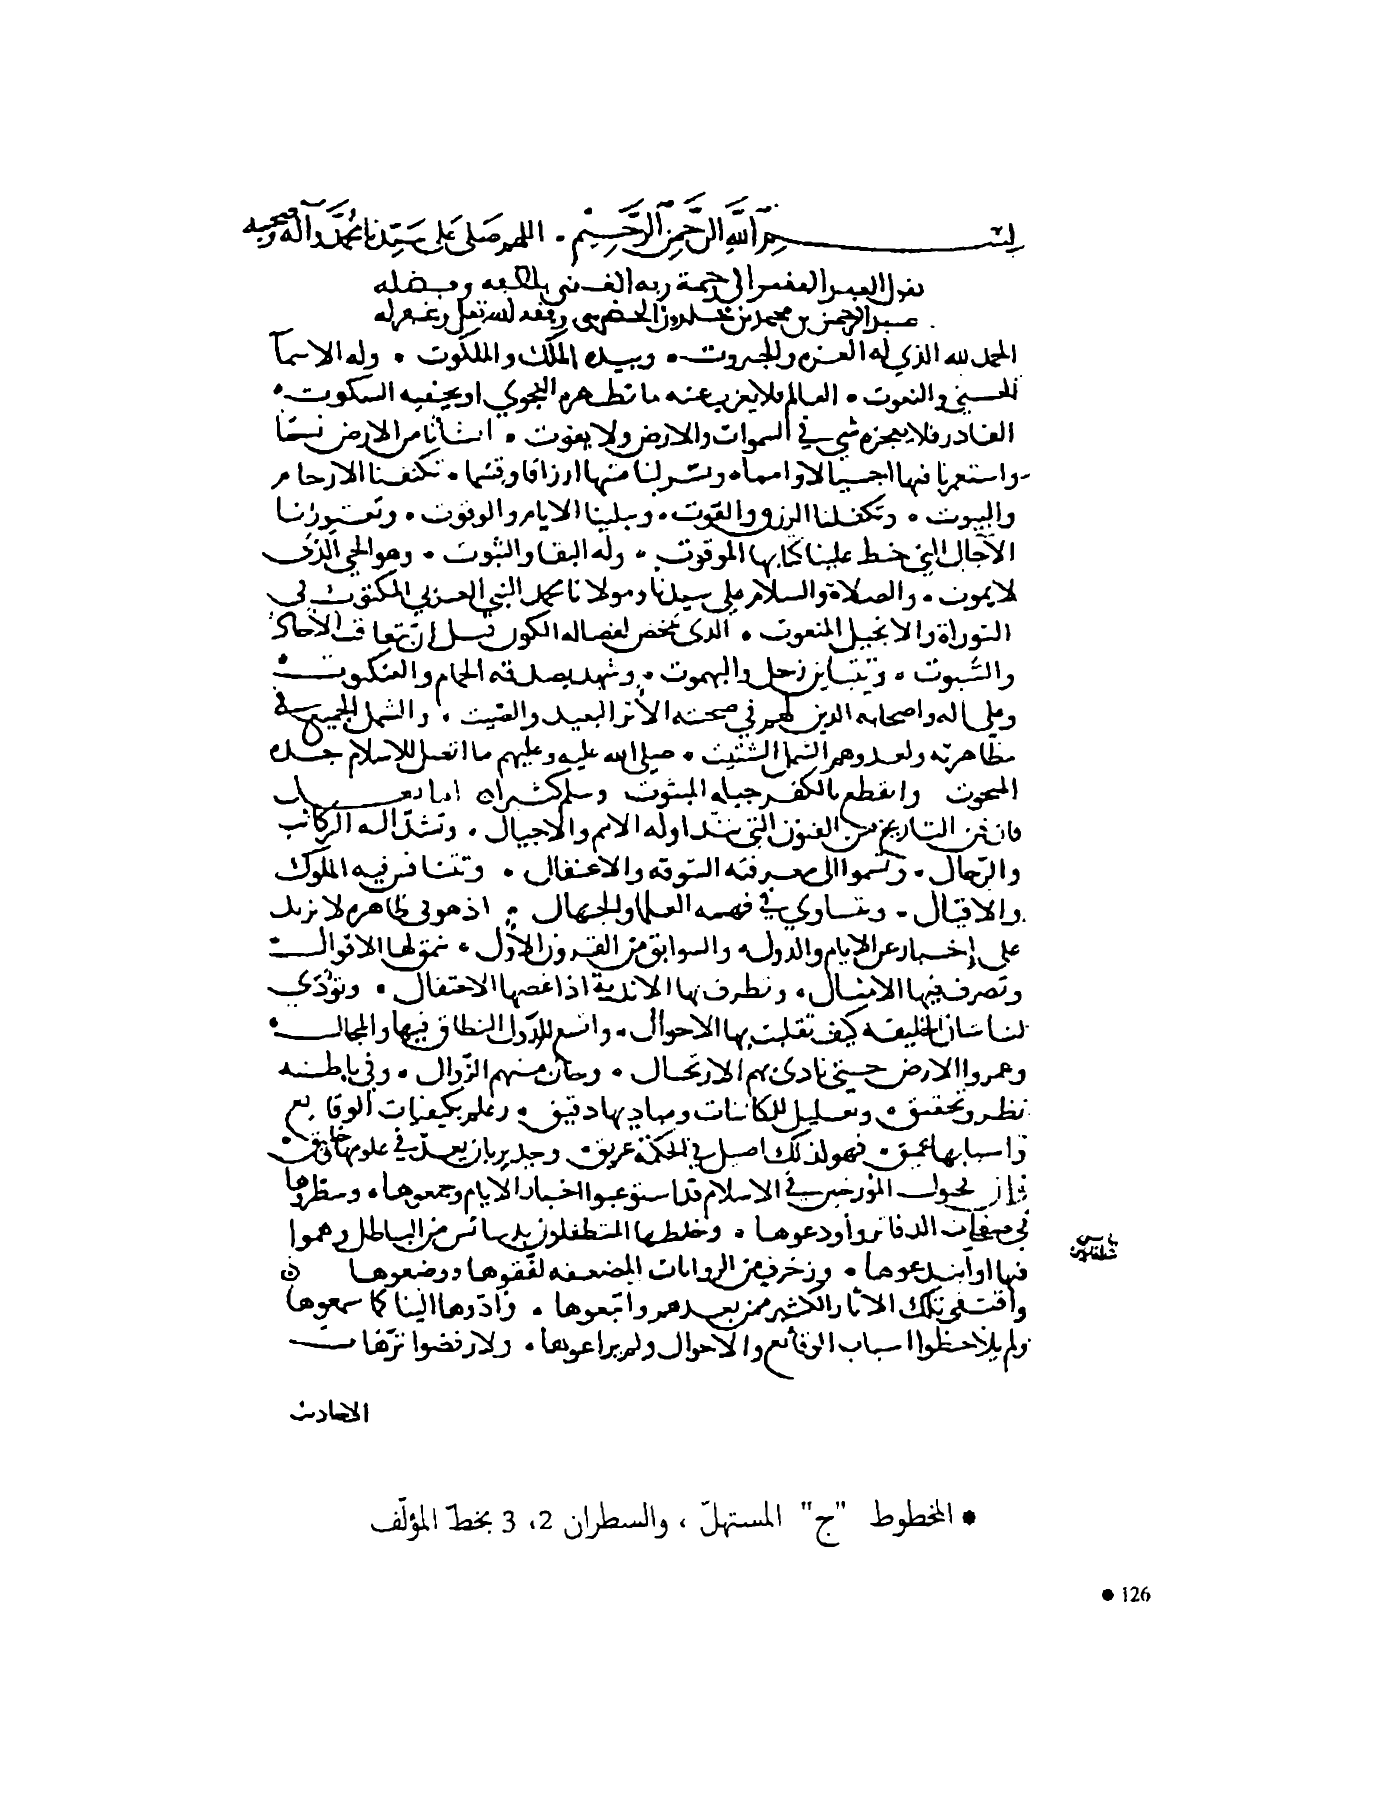 بسم اللَّه الرَّحمن الرَّحيم . اللهم صَلى عَلى سَيّدنا محمَّد وآله وصحبه
يقول العبد الفقير الى رحمة ربه الغني بلطفه وبفضله
عبد الرحمن بن محمد بن خلدون الحضرمي وفقه الله تعلى وغفر له
الحمد لله الذي له العزة والجبروت . وبيده الملك والملكوت . وله الاسمآ
الحسنى والنعوت . العالم فلا يعزب عنه ما تظهره النجوي او يخفيه السكوت .
القادر فلا يعجزه شي في السموات والارض ولا يفوت . انشأنا من الارض نسمًا
واستعمرنا فيها اجيالا وامما . ويسر لنا منها ارزاقا وقسما . تكنفنا الارحام
والبيوت . ويكفلنا الرزق والقوت . وتبلينا الايام والوقوت . وتعتورنا
الآجال التي خط علينا كتابها الموقوت . وله البقا والثبوت . وهو الحي الذى
لا يموت . والصلاة والسلام على سيدنا ومولانا محمد النبي العربي المكتوب في
التوراة والانجيل المنعوت . الذى تمخض لفصاله الكون قبل ان تتعاقب الآحاد
والسُّبوت . ويتباين زحل والبهموت . وشهد بصدقه الحمام والعنكبوت .
وعلى اله واصحابه الذين لهم في صحبته الأثر البعيد والصّيت . والشمل الجميع في
مظاهرته ولعدوهم الشمل الشتيت . صلى الله عليه وعليهم ما اتصل للاسلام جده
المبخوت وانقطع بالكفر حبله المبتوت وسلم كثيرا ه اما بعــد
فان فن التاريخ من الفنون التي يتداوله الامم والاجيال . وتشدّ اله الركائب
والرّحال . وتسموا الى معرفته السّوقه والاغفال . وتتنافس فيه الملوك
والاقيال . ويتساوي في فهمه العلما والجهال . اذ هو في ظاهره لا يزيد
على إخبار عن الايام والدول . والسوابق من القرون الأول . تنمق لها الاقوال
وتصرف فيها الامثال . وتطرف بها الاندية اذا غصها الاحتفال . وتؤدّي
لنا شان الخليقه كيف تقلبت بها الاحوال . واتسع للدّول النطاق فيها والمجال .
وعمروا الارض حتى نادى بهم الارتحال . وحان منهم الزّوال . وفي باطنه
نظر وتحقيق . وتعليل للكائنات ومباديها دقيق . وعلم بكيفيات الوقايع
واسبابها عميق . فهو لذلك اصيل في الحكمة عريق . وجدير بان يعدّ في علومها خليق .
وان فحول المؤرخين في الاسلام قد استوعبوا اخبار الايام وجمعوها . وسطروها
في صفحات الدفاتر وأودعوها . وخلطها المتطفلون بدسائس من الباطل وهموا
فيها او ابتدعوها . وزخرف من الروايات المضعفه لفقوها ووضعوها
واقتفى تلك الاثار الكثير ممن بعدهم واتبعوها . وادّوها الينا كما سمعوها
ولم يلاحظوا اسباب الوقائع والاحوال ولم يراعوها . ولا رفضوا ترّهات
الاحاديث
• المخطوط "ج" المستهلّ ، والسطران 2، 3 بخطّ المؤلّف
• 126